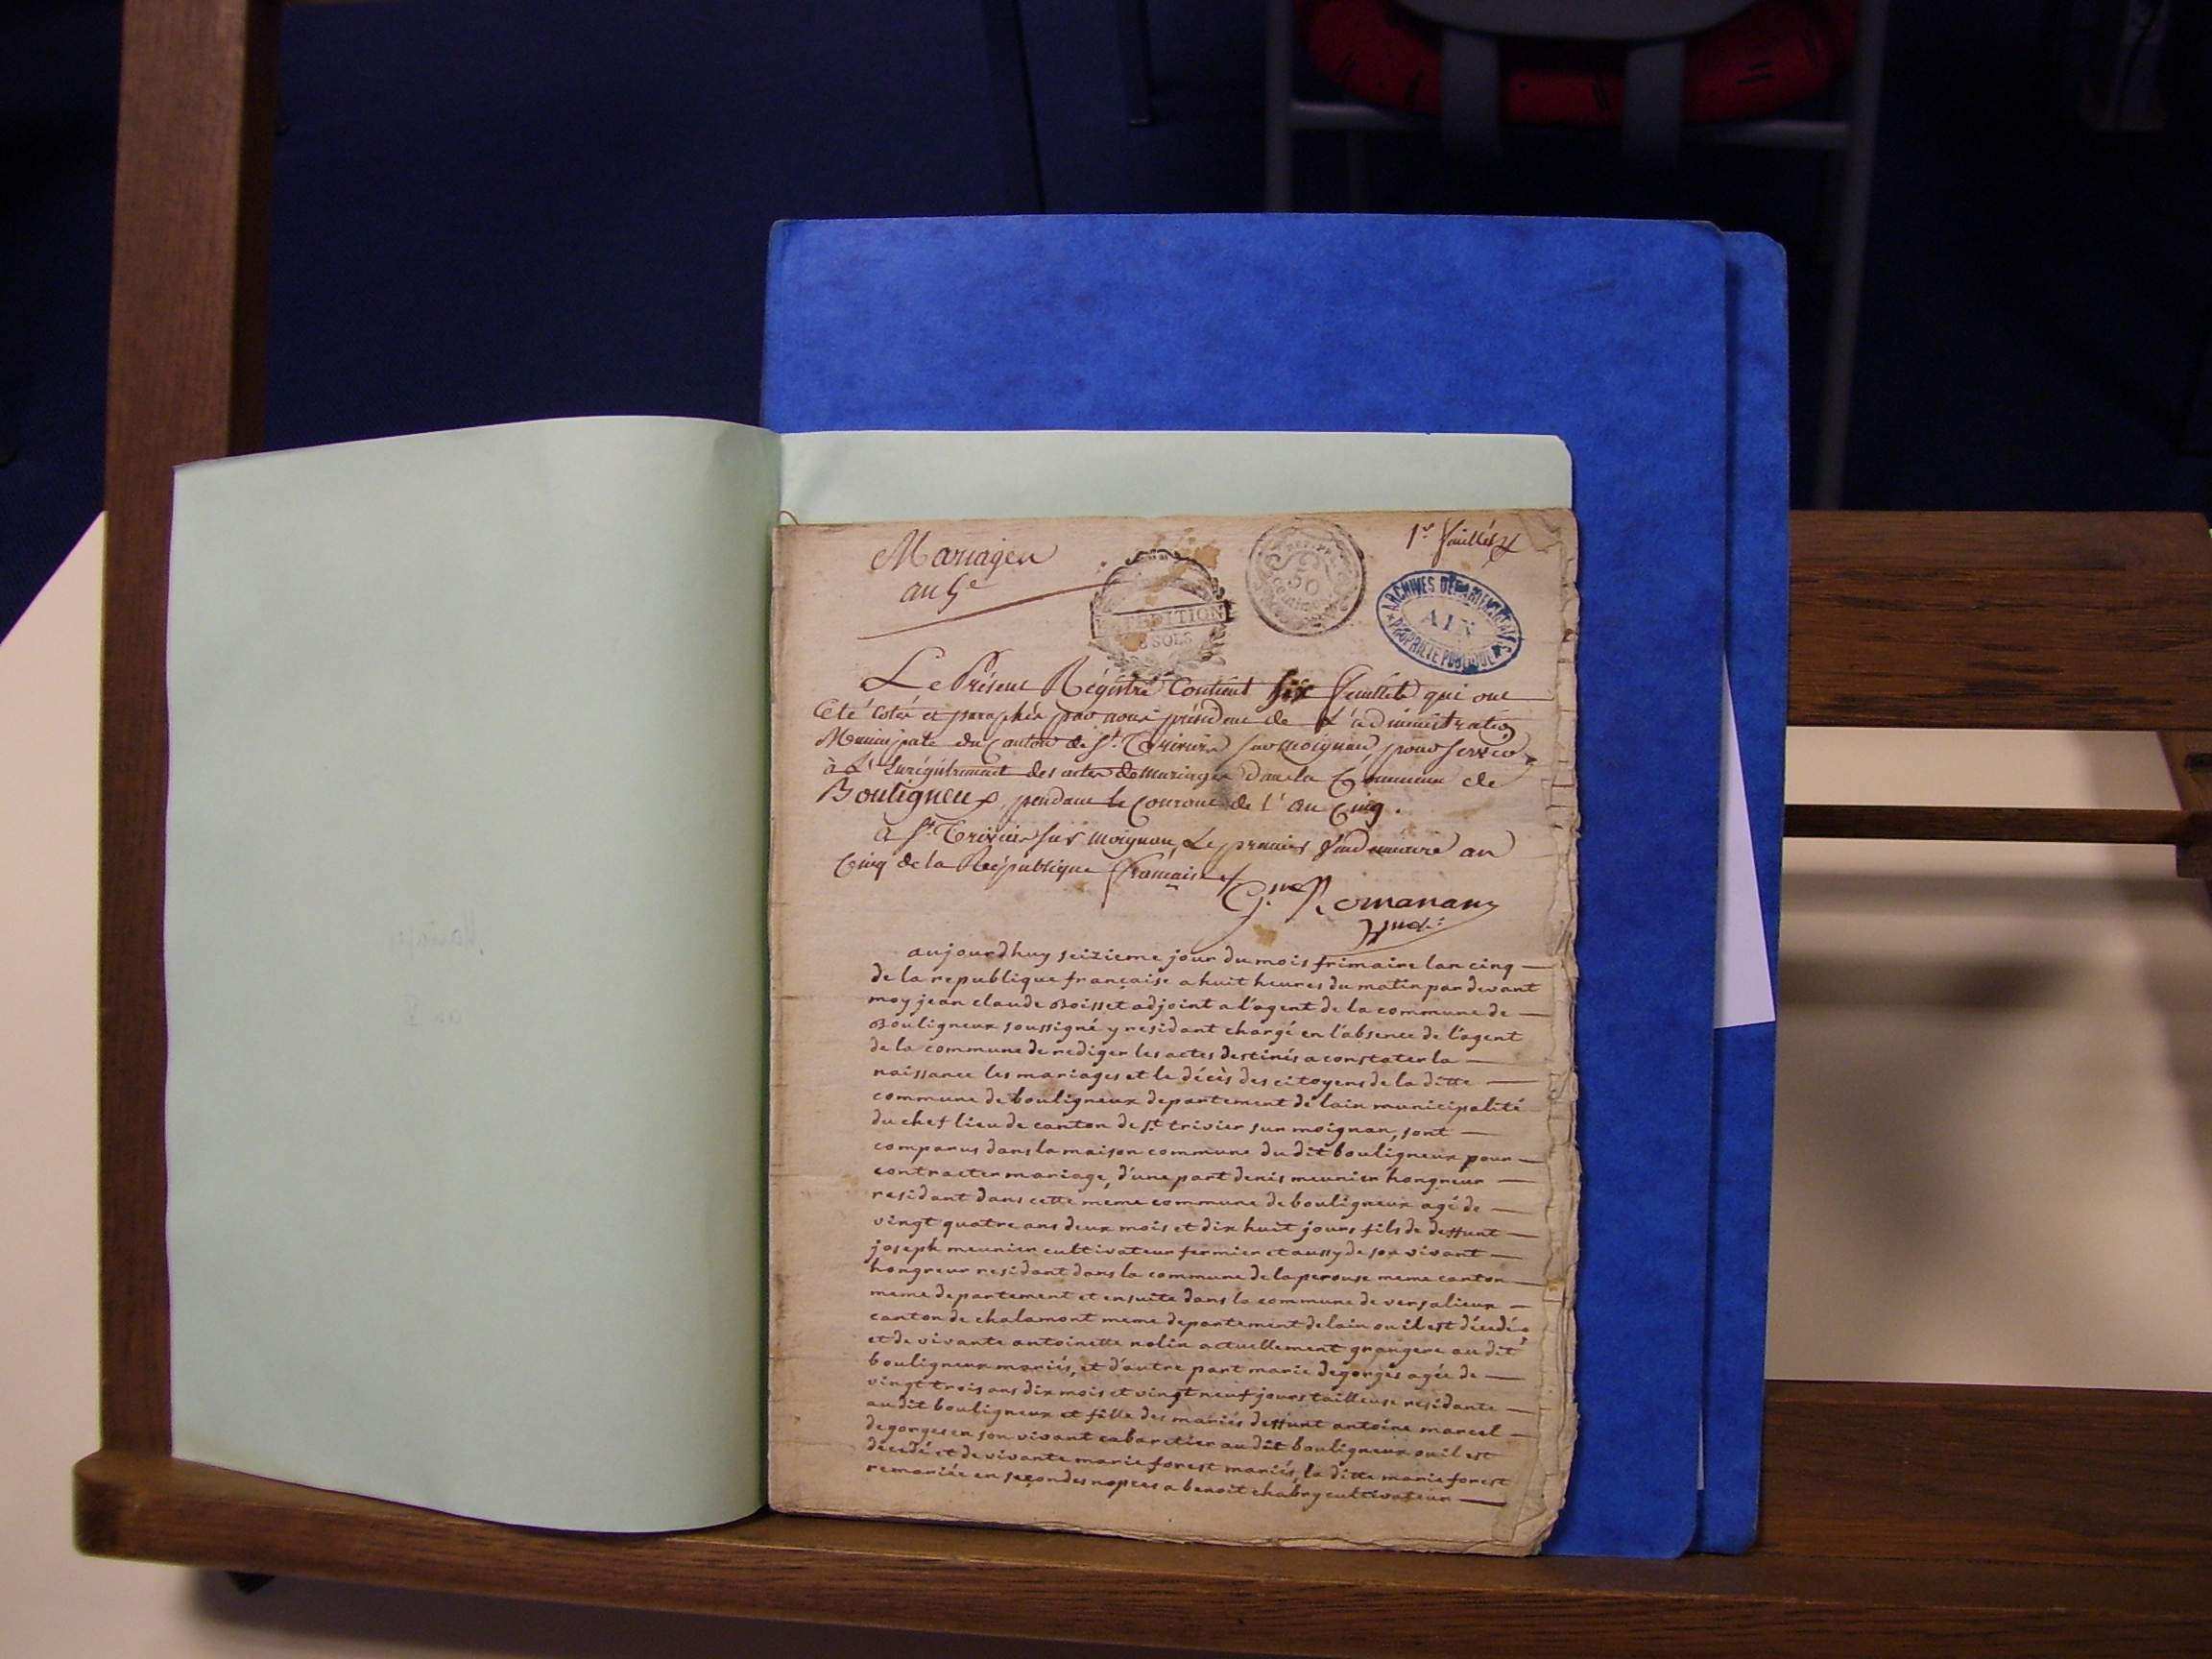 Mariages
an 5e
1er feuillet
EXPEDITION
8 SOLS
50
ARCHIVES DEPARTEMENTALES
AIN
PROPRIETE PUBLIQUE
Le Présent Régistre Contient six feuillets qui ont
Eté cotés et paraphés par nous président de L'administration
Municipale du Canton de St. Trivier sur moignan, pour servir
à L'Enrégistrement des actes de mariages dans la Commune de
Bouligneux, pendant le courant de l'an Cinq.
à St. Trivier sur moignan, Le premier Vendemiaire an
Cinq de la République française
G. Romanans
aujourdhuy seizieme jour du mois frimaire lan cinq
de la republique française a huit heures du matin par devant
moy jean claude Boisset adjoint a l'agent de la commune de
Bouligneux soussigné y residant chargé en l'absence de l'agent
de la commune de rediger les actes destinés a constater la
naissance les mariages et le décès des citoyens de la ditte
commune de bouligneux departement de lain municipalité
du chef lieu de canton de st trivier sur moignan, sont
comparus dans la maison commune du dit bouligneux pour
contracter mariage, d'une part denis meunier hongreur
residant dans cette meme commune de bouligneux agé de
vingt quatre ans deux mois et dix huit jours fils de deffunt
joseph meunier cultivateur fermier et aussy de son vivant
hongreur residant dans la commune de laperouse meme canton
meme departement et ensuite dans la commune de versalieux
canton de chalamont meme departement de lain ou il est décédé
et de vivante antoinette nolin actuellement grangere au dit
bouligneux mariés, et d'autre part marie degorges agée de
vingt trois ans dix mois et vingt neuf jours tailleuse residante
au dit bouligneux et fille des mariés deffunt antoine marcel
degorges en son vivant cabaretier au dit bouligneux ou il est
décédé et de vivante marie forest mariés, la ditte marie forest
remariée en secondes nopces a benoit chabry cultivateur